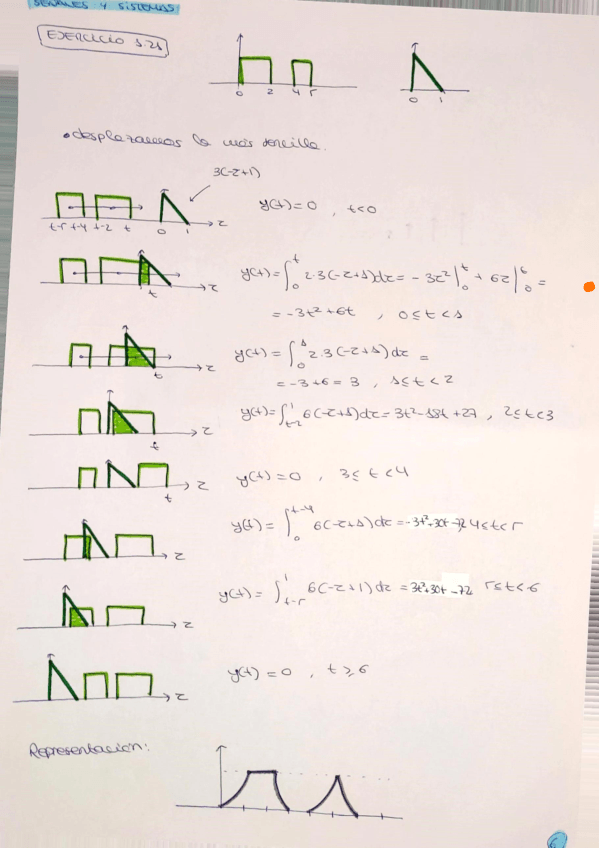 SEÑALES Y SISTEMAS
EJERCICIO 5.25
0 2 4 5
0 1
• desplazamos la más sencilla.
3(-τ+1)
t-5 t-4 t-2 t 0 1 τ
y(t)=0 , t<0
t τ
y(t)=∫₀ᵗ 2·3(-τ+1)dτ = -3τ²|₀ᵗ + 6τ|₀⁶ =
= -3t²+6t , 0≤t<1
t τ
y(t)=∫₀¹ 2·3(-τ+1)dτ =
= -3+6=3 , 1≤t<2
t τ
y(t)=∫_{t-2}^1 6(-τ+1)dτ = 3t²-18t+27 , 2≤t<3
t τ
y(t)=0 , 3≤t<4
τ
y(t)=∫₀^{t-4} 6(-τ+1)dτ = -3t²+30t-72 4≤t<5
τ
y(t)=∫_{t-5}^1 6(-τ+1)dτ = 3t²+30t-72 5≤t<6
τ
y(t)=0 , t≥6
Representación:
6